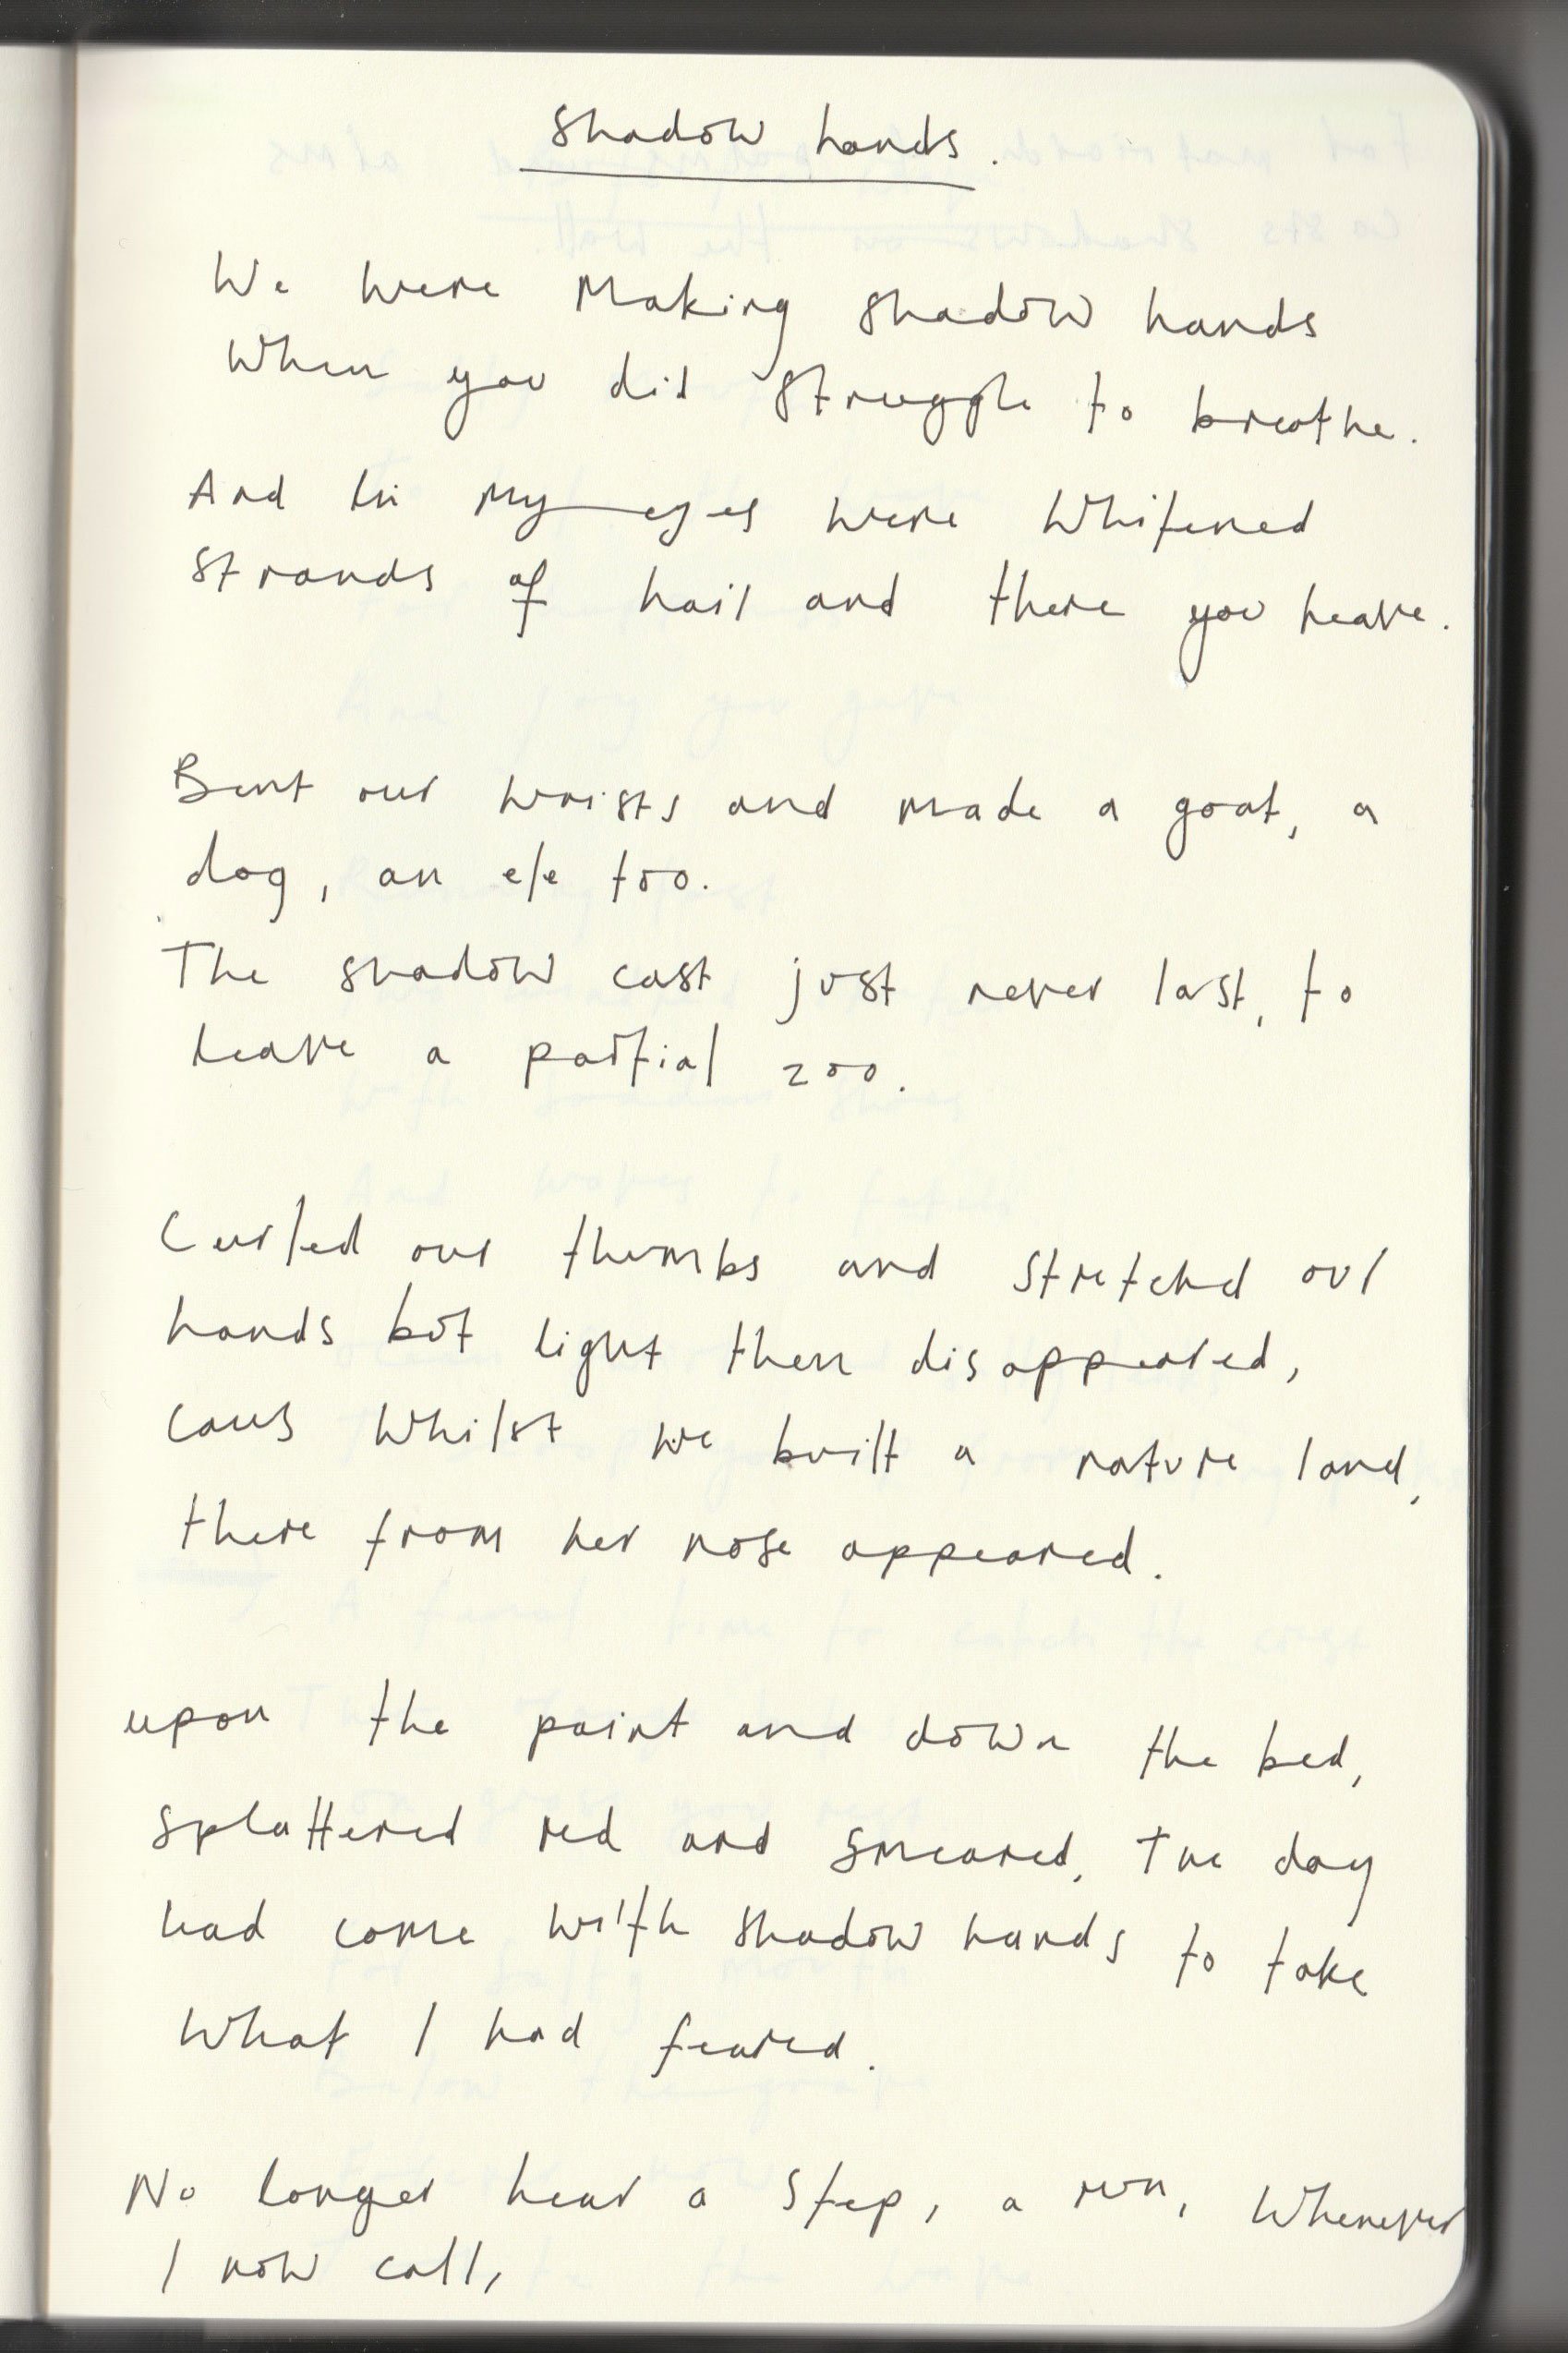 Shadow hands.
We were Making Shadow hands
When you did struggle to breathe.
And in my eyes were whitened
strands of hair and there you heave.
Bent our wrists and made a goat, a
dog, an ele too.
The shadow cast just never last, to
leave a partial zoo.
Curled our thumbs and stretched our
hands but light then disappeared,
caus whilst we built a nature land,
there from her nose appeared.
upon the paint and down the bed,
splattered red and smeared, The day
had come with shadow hands to take
What I had feared.
No longer hear a step, a run, Whenever
I now call,